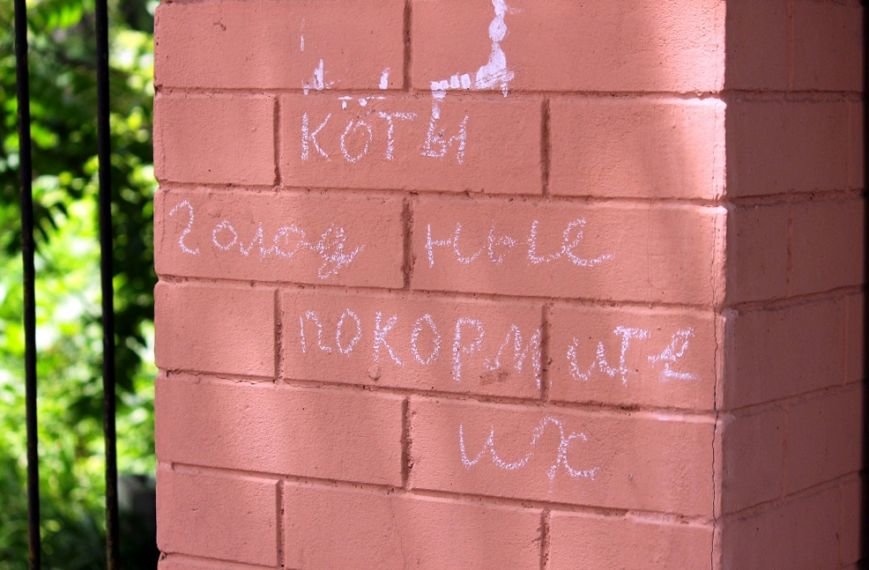 коты
голод ные
покормите
их